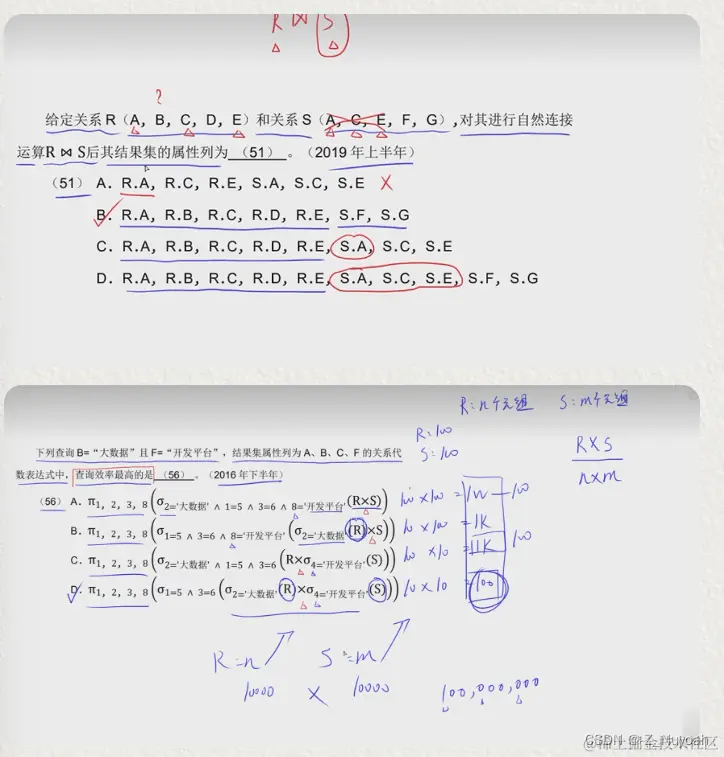 R ⋈ S
?
给定关系 R（A, B, C, D, E）和关系 S（A, C, E, F, G）,对其进行自然连接
运算R ⋈ S后其结果集的属性列为__(51)__。（2019 年上半年）
（51） A. R.A, R.C, R.E, S.A, S.C, S.E ×
B. R.A, R.B, R.C, R.D, R.E, S.F, S.G
C. R.A, R.B, R.C, R.D, R.E, S.A, S.C, S.E
D. R.A, R.B, R.C, R.D, R.E, S.A, S.C, S.E, S.F, S.G
R:n个元组 S:m个元组
R:100
S:100
R×S
n×m
下列查询 B=“大数据”且 F=“开发平台”，结果集属性列为 A、B、C、F 的关系代
数表达式中，查询效率最高的是__(56)__。（2016 年下半年）
（56） A. π1, 2, 3, 8 (σ2='大数据' ∧ 1=5 ∧ 3=6 ∧ 8='开发平台'(R×S))
B. π1, 2, 3, 8 (σ1=5 ∧ 3=6 ∧ 8='开发平台' (σ2='大数据'(R)×S)) =1K
C. π1, 2, 3, 8 (σ2='大数据' ∧ 1=5 ∧ 3=6 (R×σ4='开发平台'(S)))
D. π1, 2, 3, 8 (σ1=5 ∧ 3=6 (σ2='大数据'(R)×σ4='开发平台'(S))) 10×10 =100
R=n S=m
10000 × 10000 100,000,000